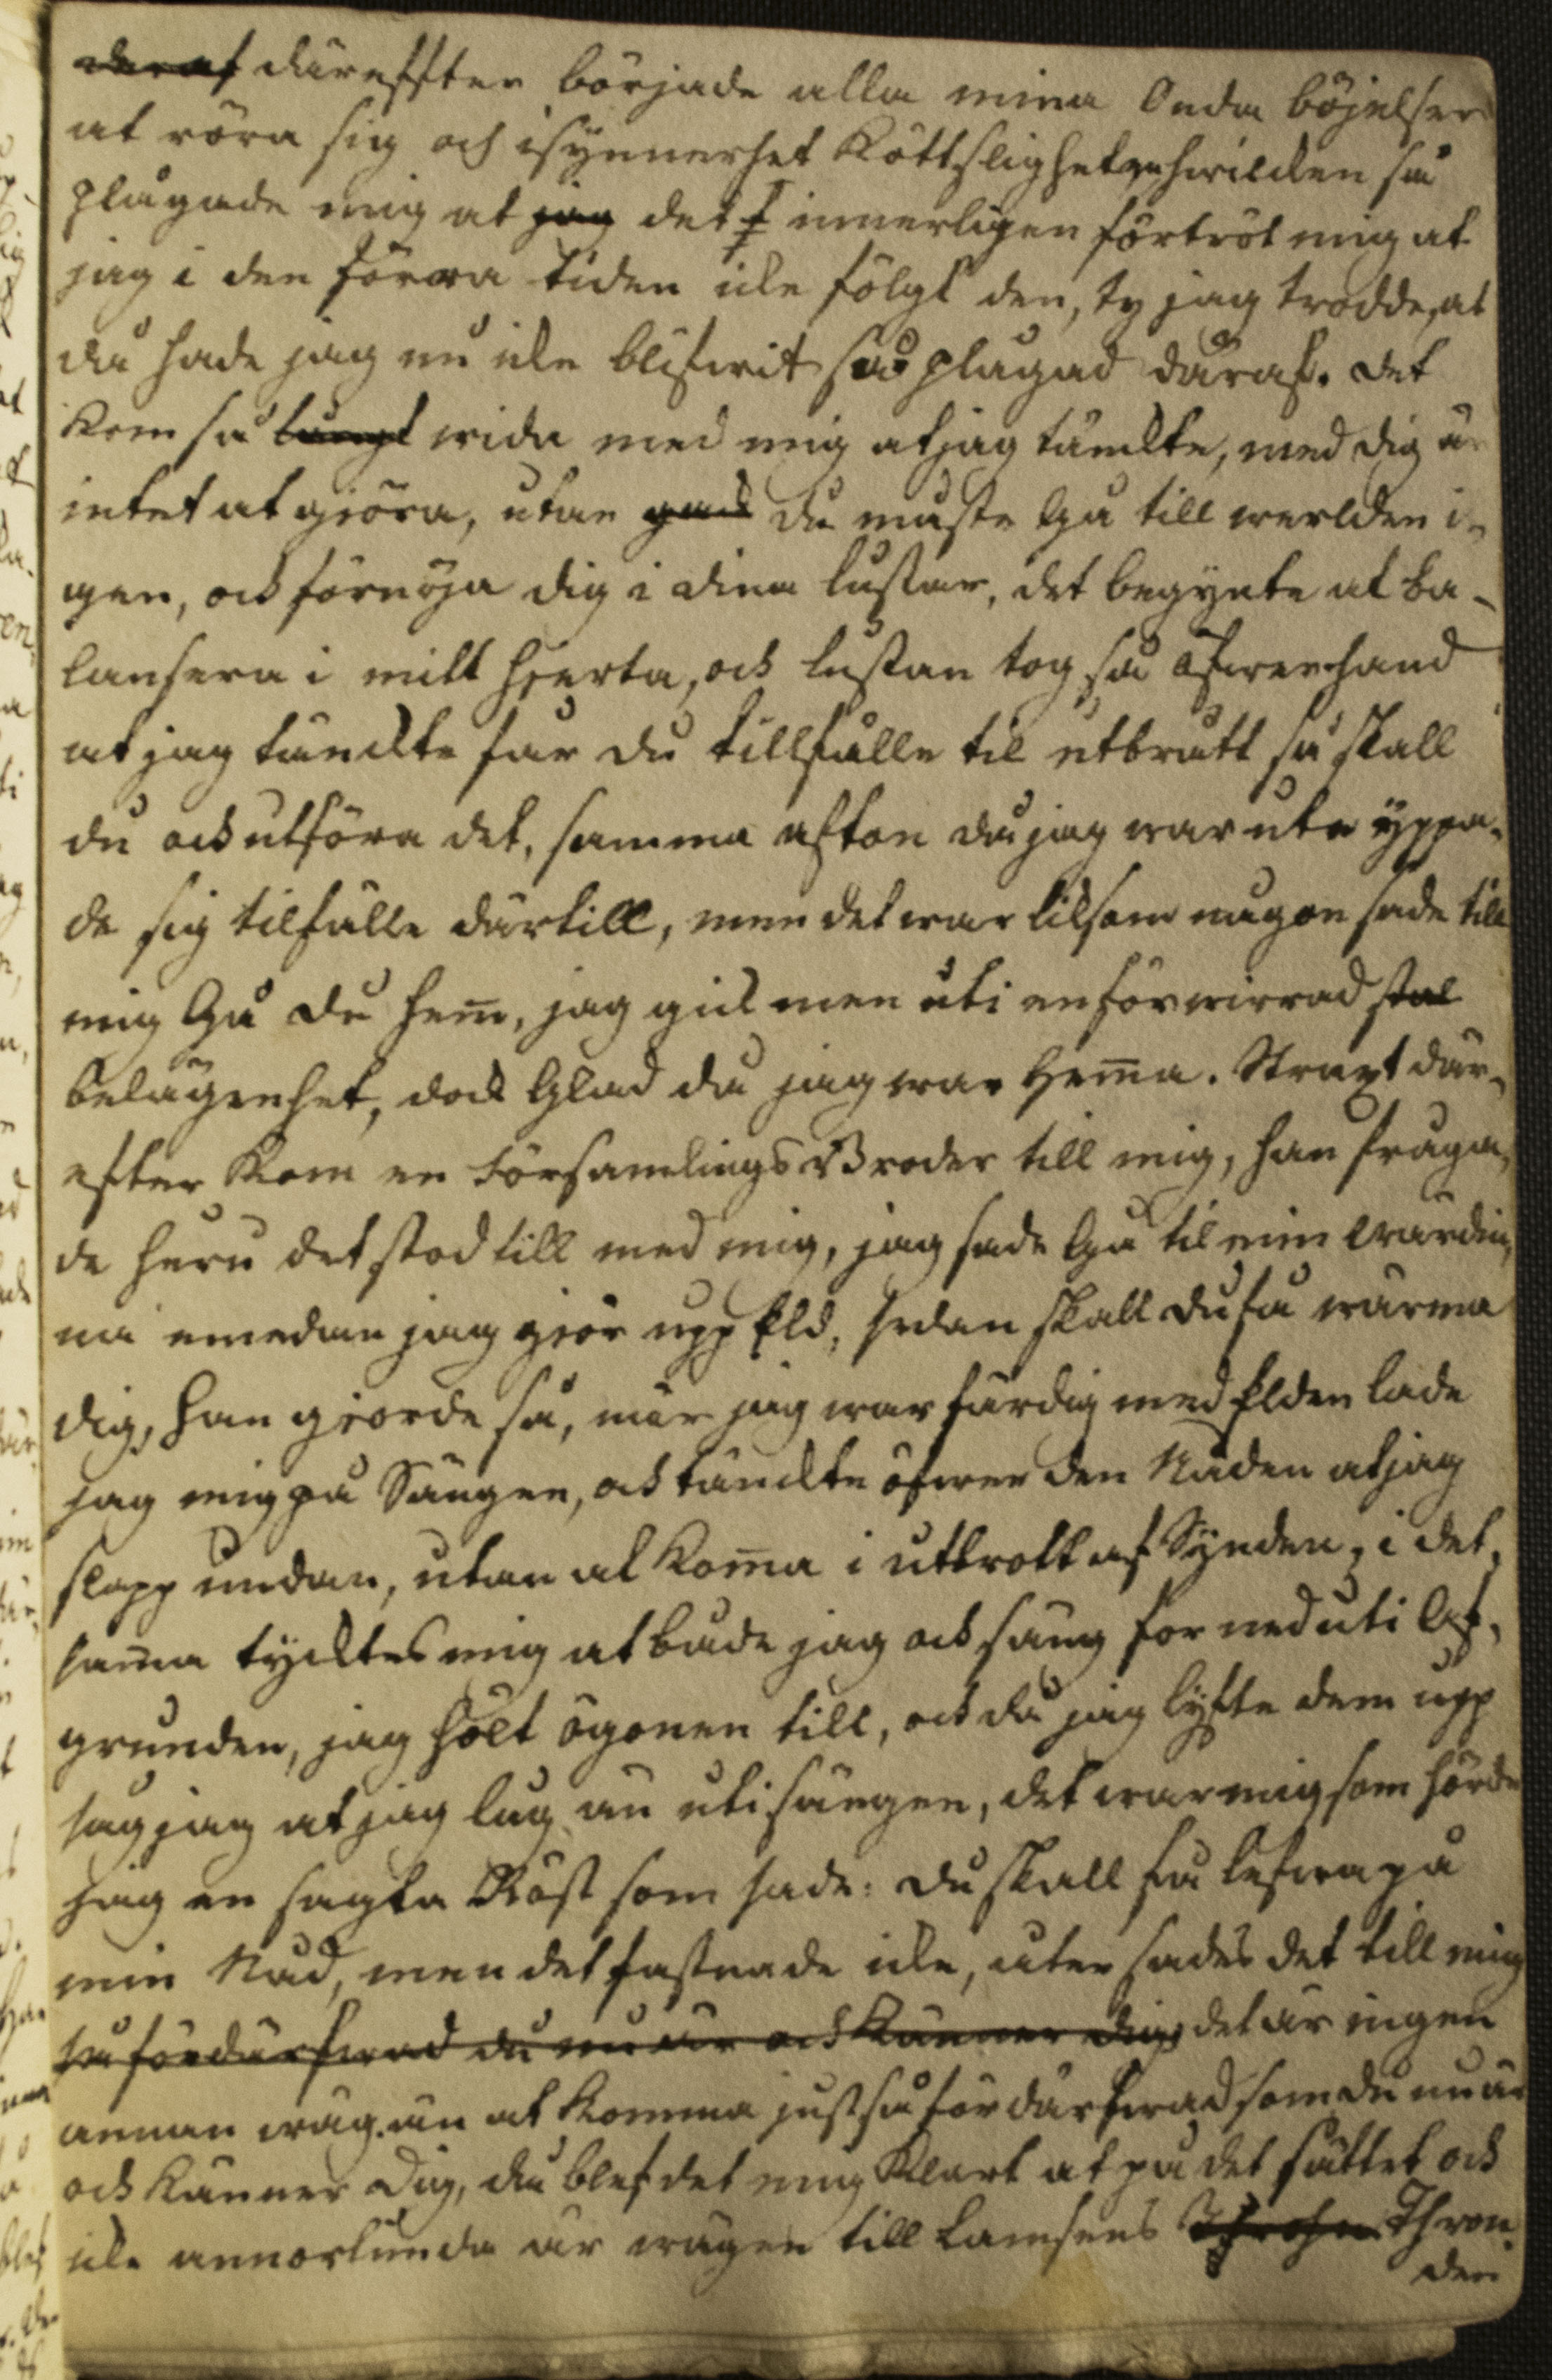 deraf däreffter började alla mina Onda böjelser
at röra sig och isynnerhet Köttslighet, hwilcken så
plågade mig at jag det innerligen förtröt mig at
jag i den förra tiden icke fölgt den, ty jag trodde, at
då hade jag nu icke blifwit så plågad däraf. det
kom så långt wida med mig at jag tänckte, med dig är
intet at giöra, utan gack du måste Gå till werlden i-
gen, ock förnöja dig i dina lustar, det begynte at ba-
lansera i mitt hjerta, ock lustan tog så öfwerhand
at jag tänckte får du tillfälle til utbrått så skall
du ock utföra det, samma afton då jag war ute yppa-
de sig tilfälle därtill, men det war likson någon sade till
mig Gå du hem̅, jag gick men uti en förwirrad stal
belägenhet, dock Glad då jag war Hem̅a. Straxt där-
efter Kom en Församlings Broder till mig, han fråga-
de huru det stod till med mig, jag sade Gå til min Wärdin-
na emedan jag giör upp Eld, sedan skall du få wärma
dig, han giorde så, när jag war färdig med Elden lade
jag mig på Sängen, ock tänckte öfwer den Nåden at jag
slapp undan, utan at Kom̅a i utbrott af Synden, i det-
sam̅a tycktes mig at både jag ock säng for ned uti Af-
grunden, jag hölt ögonen till, ock då jag lyfte dem upp
såg jag at jag låg än uti sängen, det war mig som hörde
jag en sagta Röst som sade: du skall få lefwa på
min Nåd, men det fastnade icke, åter sades det till mig
så fördärfwad du nu är ock Känner dig, det är ingen
annan wäg än at Komma just så fördärfwad som du nu är
ock Känner dig, då blef det mig Klart at på det sättet ock
icke annorlunda är wägen till Lamsens Throhn Thron.
den